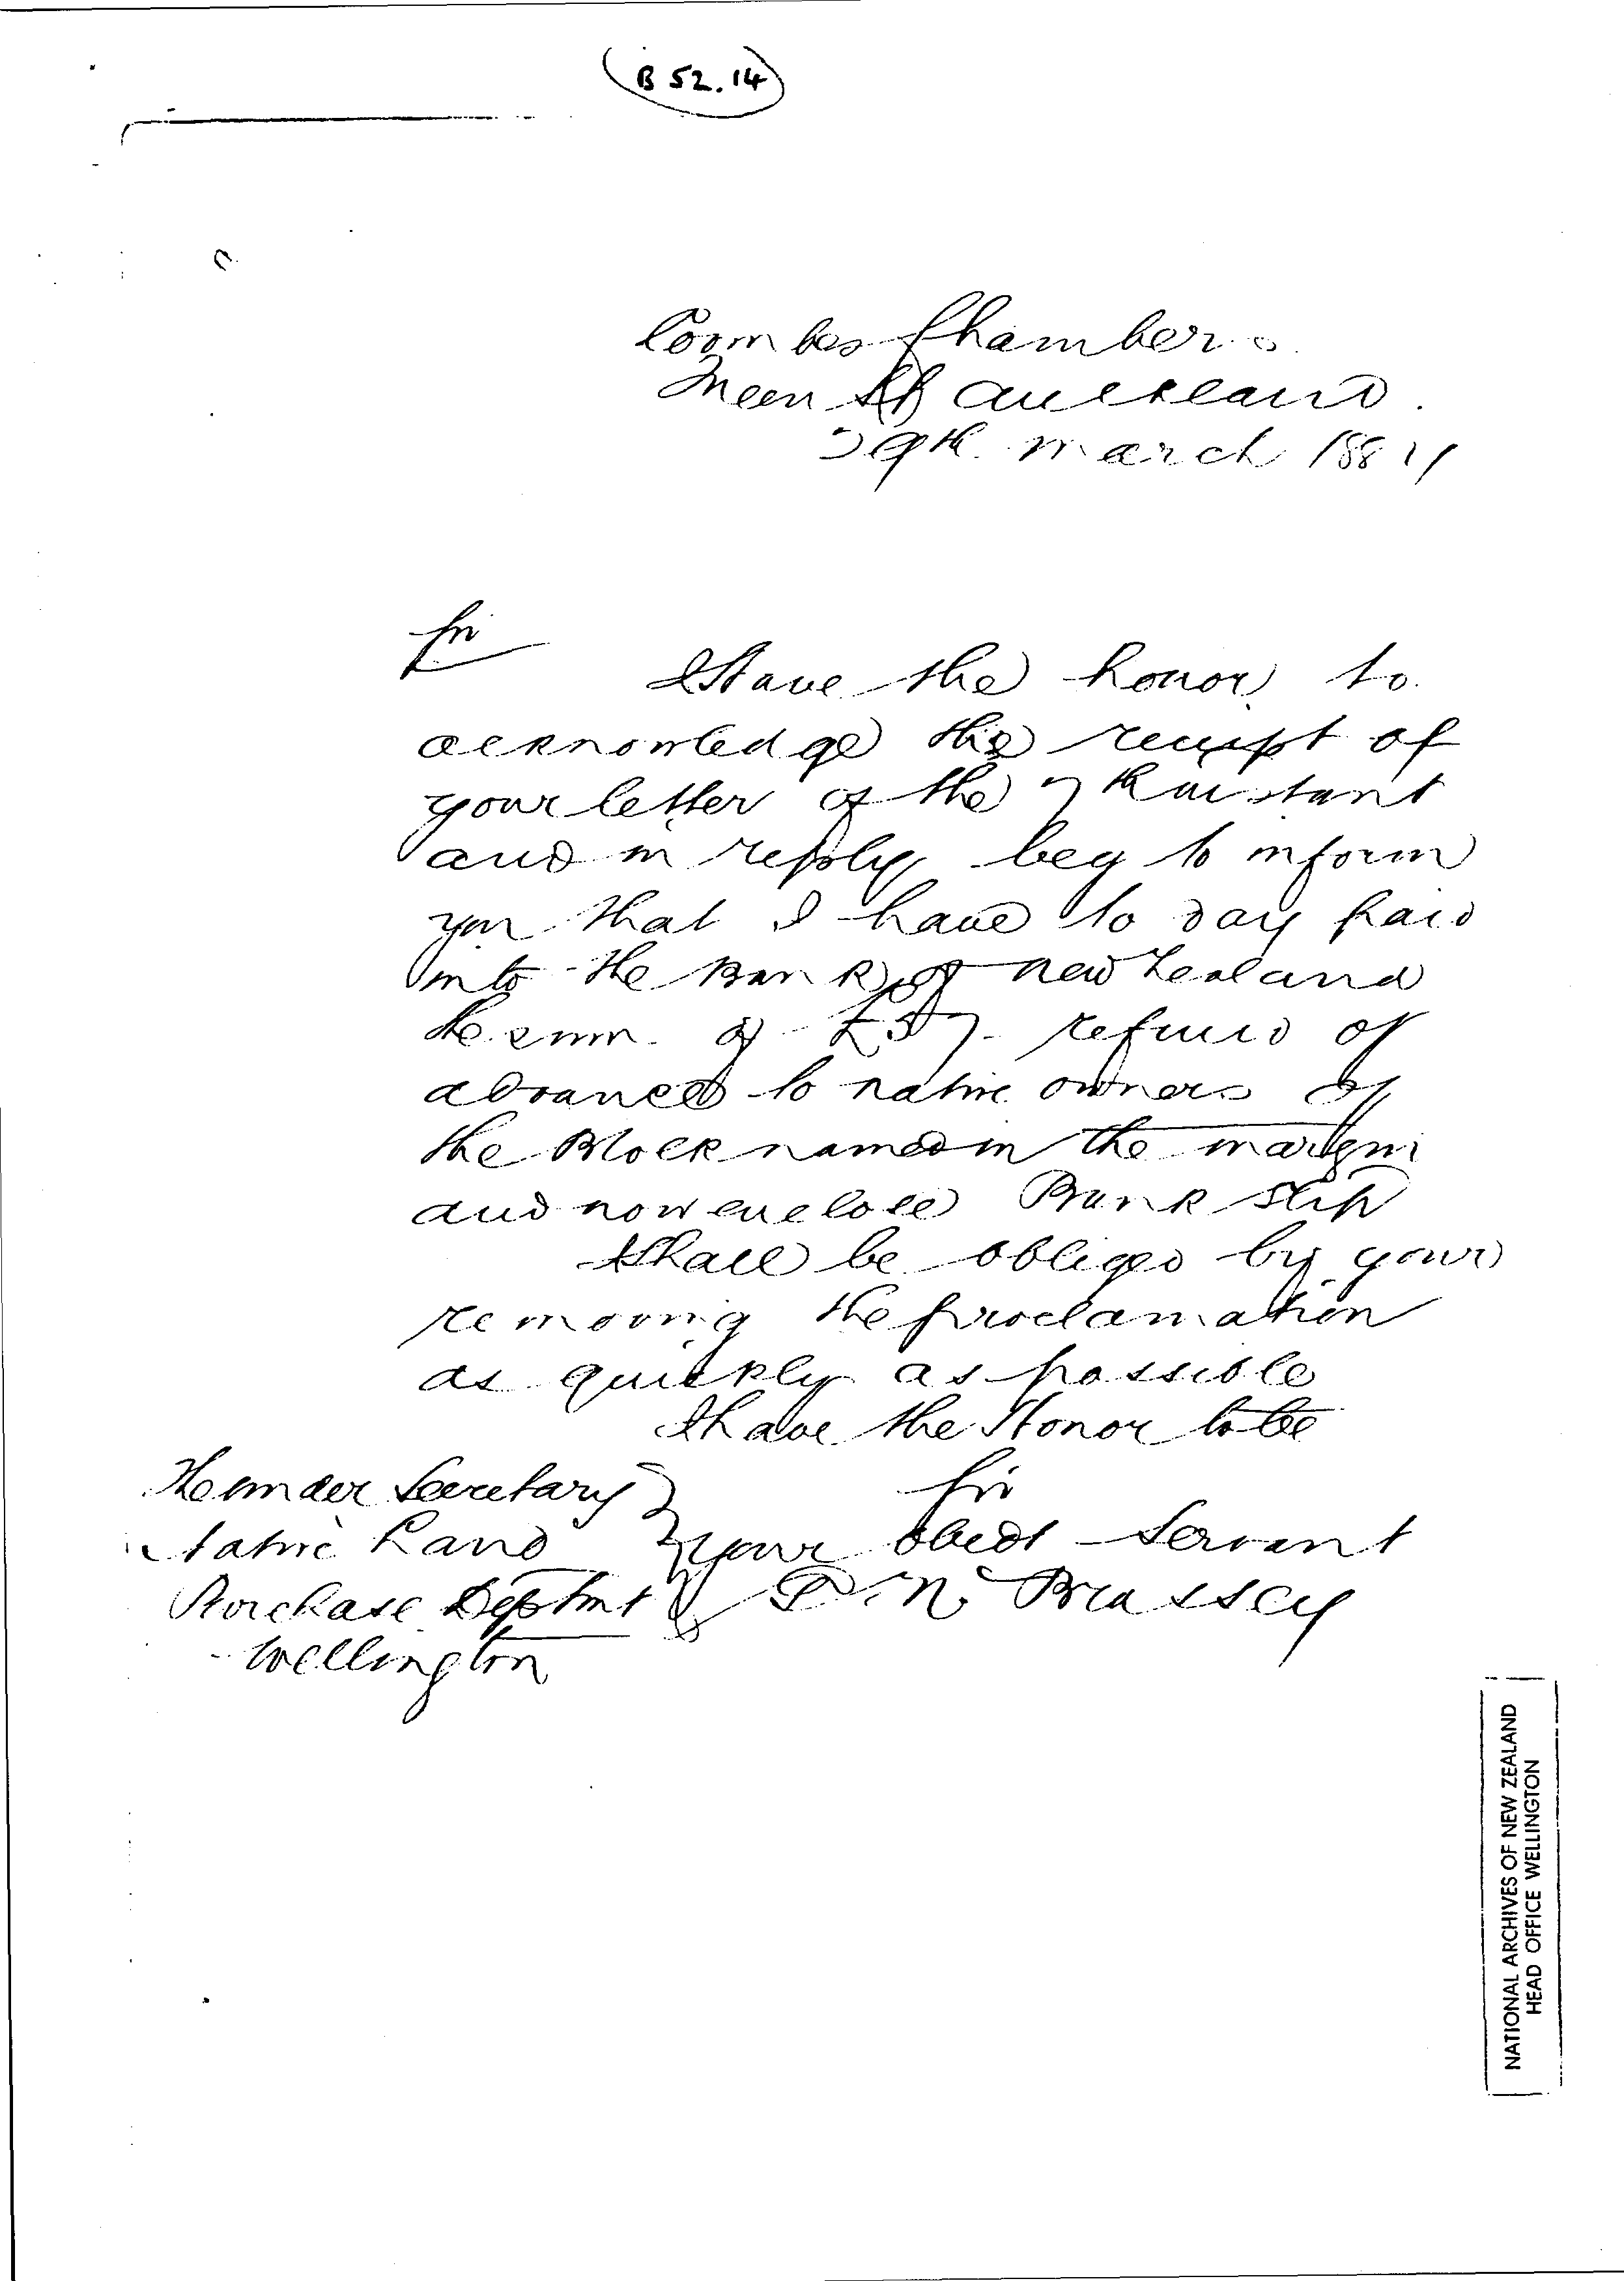 B 52.14
Coombes Chambers
Queen St Auckland
29th March 188
Sir
I Have the honor to
acknowledge the receipt of
your letter of the 7th instant
and in reply beg to inform
you that I have to day paid
into the Bank of New Zealand
the sum of £ refund of
advances to native owners of
the Block named in the margin
and now enclose Bank slip
Shall be obliged by your
removing the proclamation
as quickly as possible
I have the Honor to be
Sir
Your Obedt Servant
Brassey
The Under Secretary
Native Land
Purchase Deptmt
Wellington
NATIONAL ARCHIVES OF NEW ZEALAND
HEAD OFFICE WELLINGTON